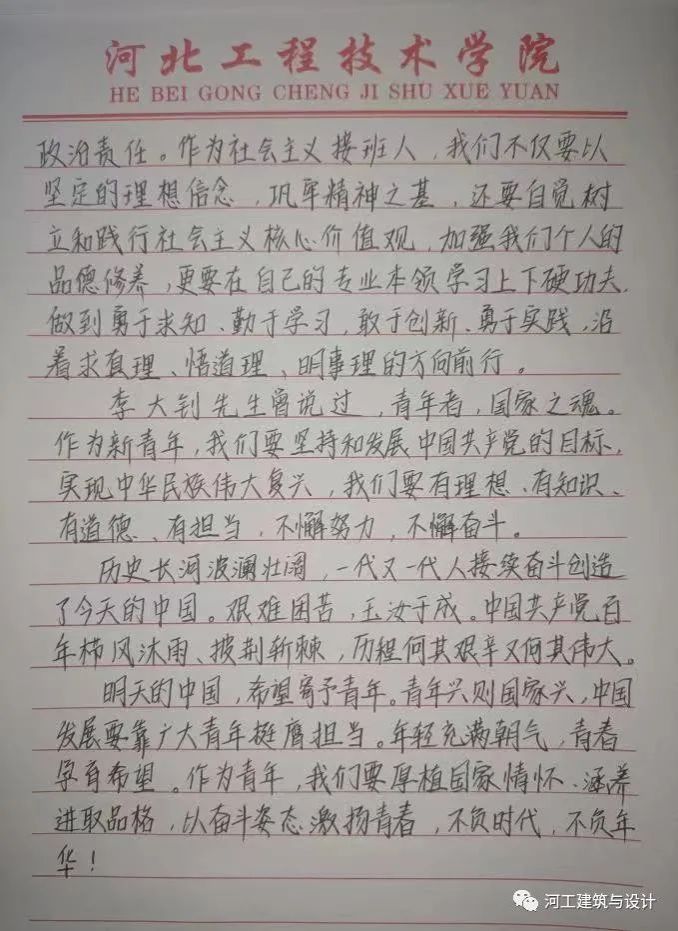 河北工程技术学院
HE BEI GONG CHENG JI SHU XUE YUAN
政治责任。作为社会主义接班人，我们不仅要以
坚定的理想信念，巩牢精神之基，还要自觉树
立和践行社会主义核心价值观，加强我们个人的
品德修养，更要在自己的专业本领学习上下硬功夫，
做到勇于求知、勤于学习，敢于创新、勇于实践，沿
着求真理、悟道理、明事理的方向前行。
李大钊先生曾说过，青年者，国家之魂。
作为新青年，我们要坚持和发展中国共产党的目标，
实现中华民族伟大复兴，我们要有理想、有知识、
有道德、有担当，不懈努力，不懈奋斗。
历史长河波澜壮阔，一代又一代人接续奋斗创造
了今天的中国。艰难困苦，玉汝于成。中国共产党百
年栉风沐雨、披荆斩棘，历程何其艰辛又何其伟大。
明天的中国，希望寄予青年。青年兴则国家兴，中国
发展要靠广大青年挺膺担当。年轻充满朝气，青春
孕育希望。作为青年，我们要厚植国家情怀、涵养
进取品格，以奋斗姿态激扬青春，不负时代，不负年
华！
河工建筑与设计